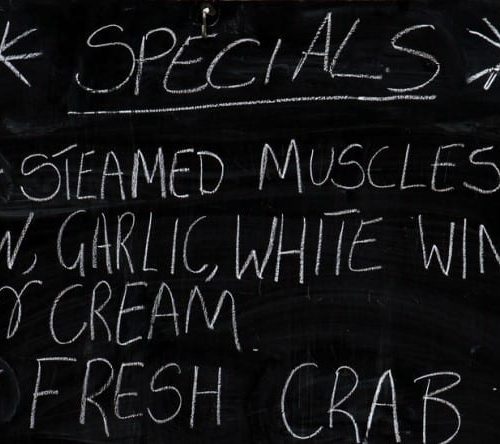 SPECIALS
STEAMED MUSCLES
GARLIC, WHITE
CREAM
FRESH CRAB